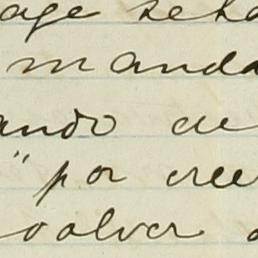 age seha
manda
ando de
" por cree
volver a